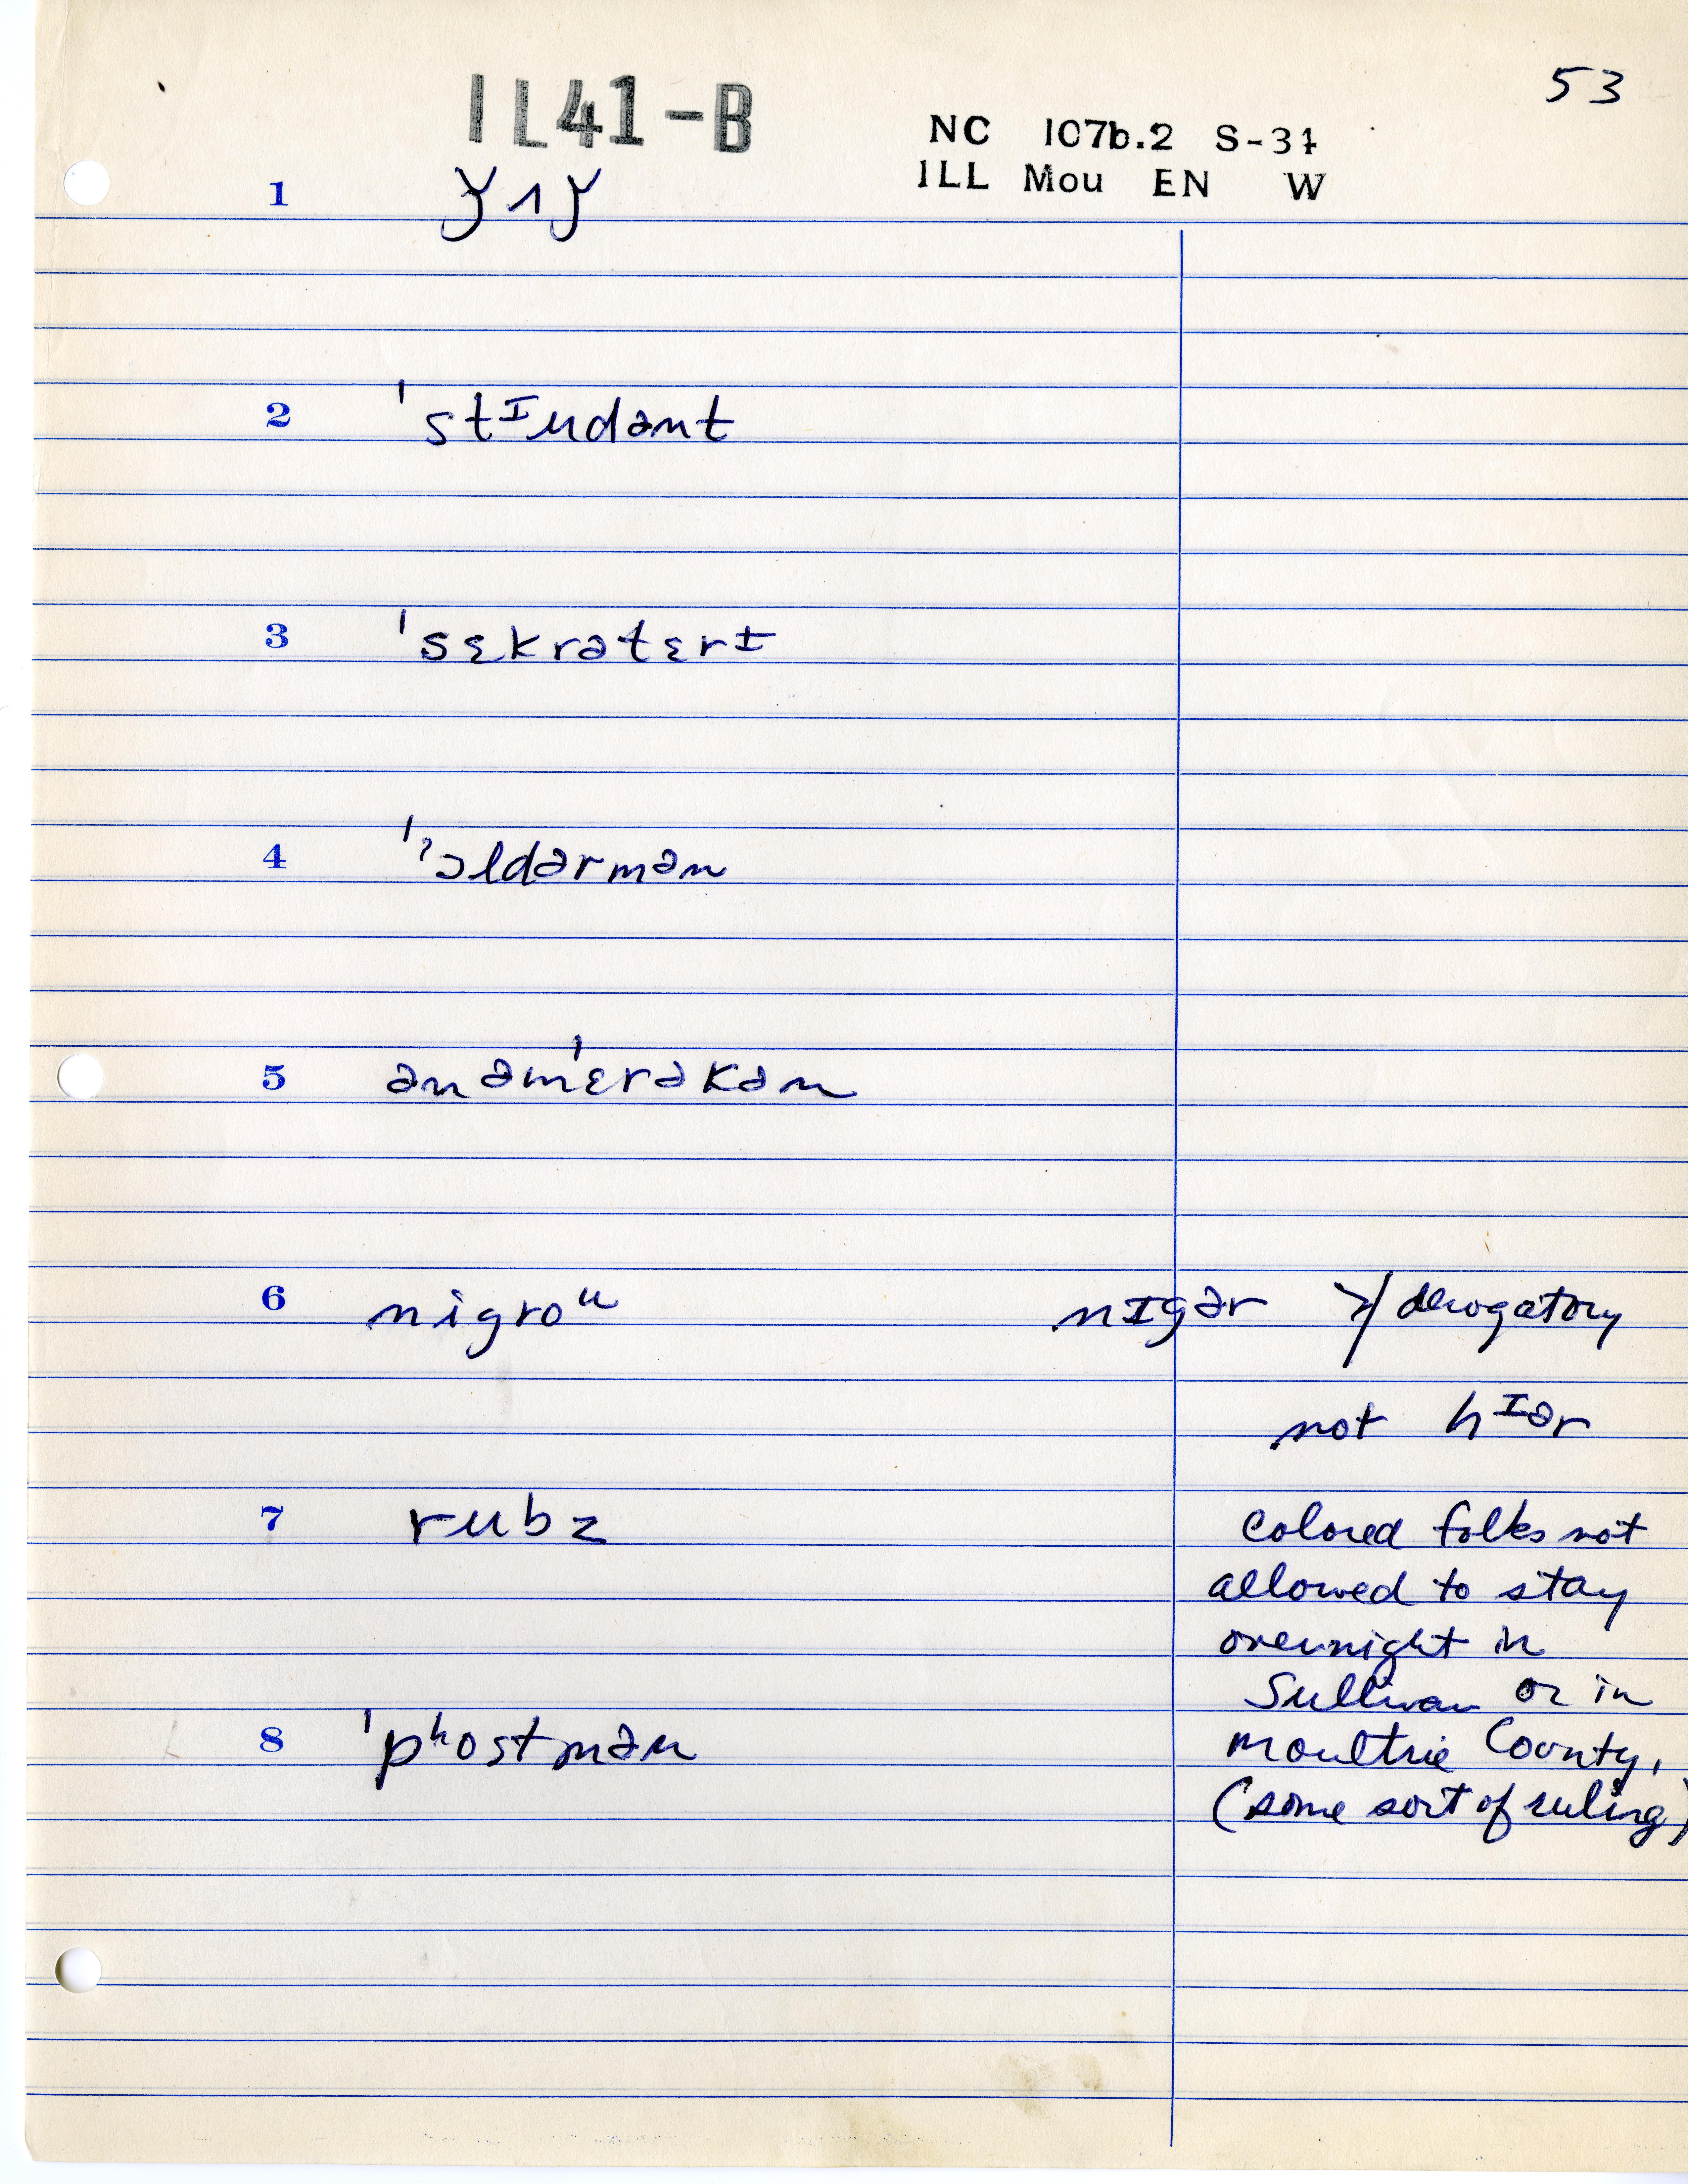 53
IL41-B
NC 107b.2 S-31
ILL Mou EN W
1 ǰʌǰ
2 ˈstᴵudənt
3 ˈsɛkrətɛrɪ
4 ˈˀɔldərmən
5 ənəmˈɛrəkən
6 nigroᵘ nɪgər derogatory
not hᴵər
7 rubz colored folks not
allowed to stay
overnight in
Sullivan or in
8 ˈpʰostmən Moultrie County,
(some sort of ruling)